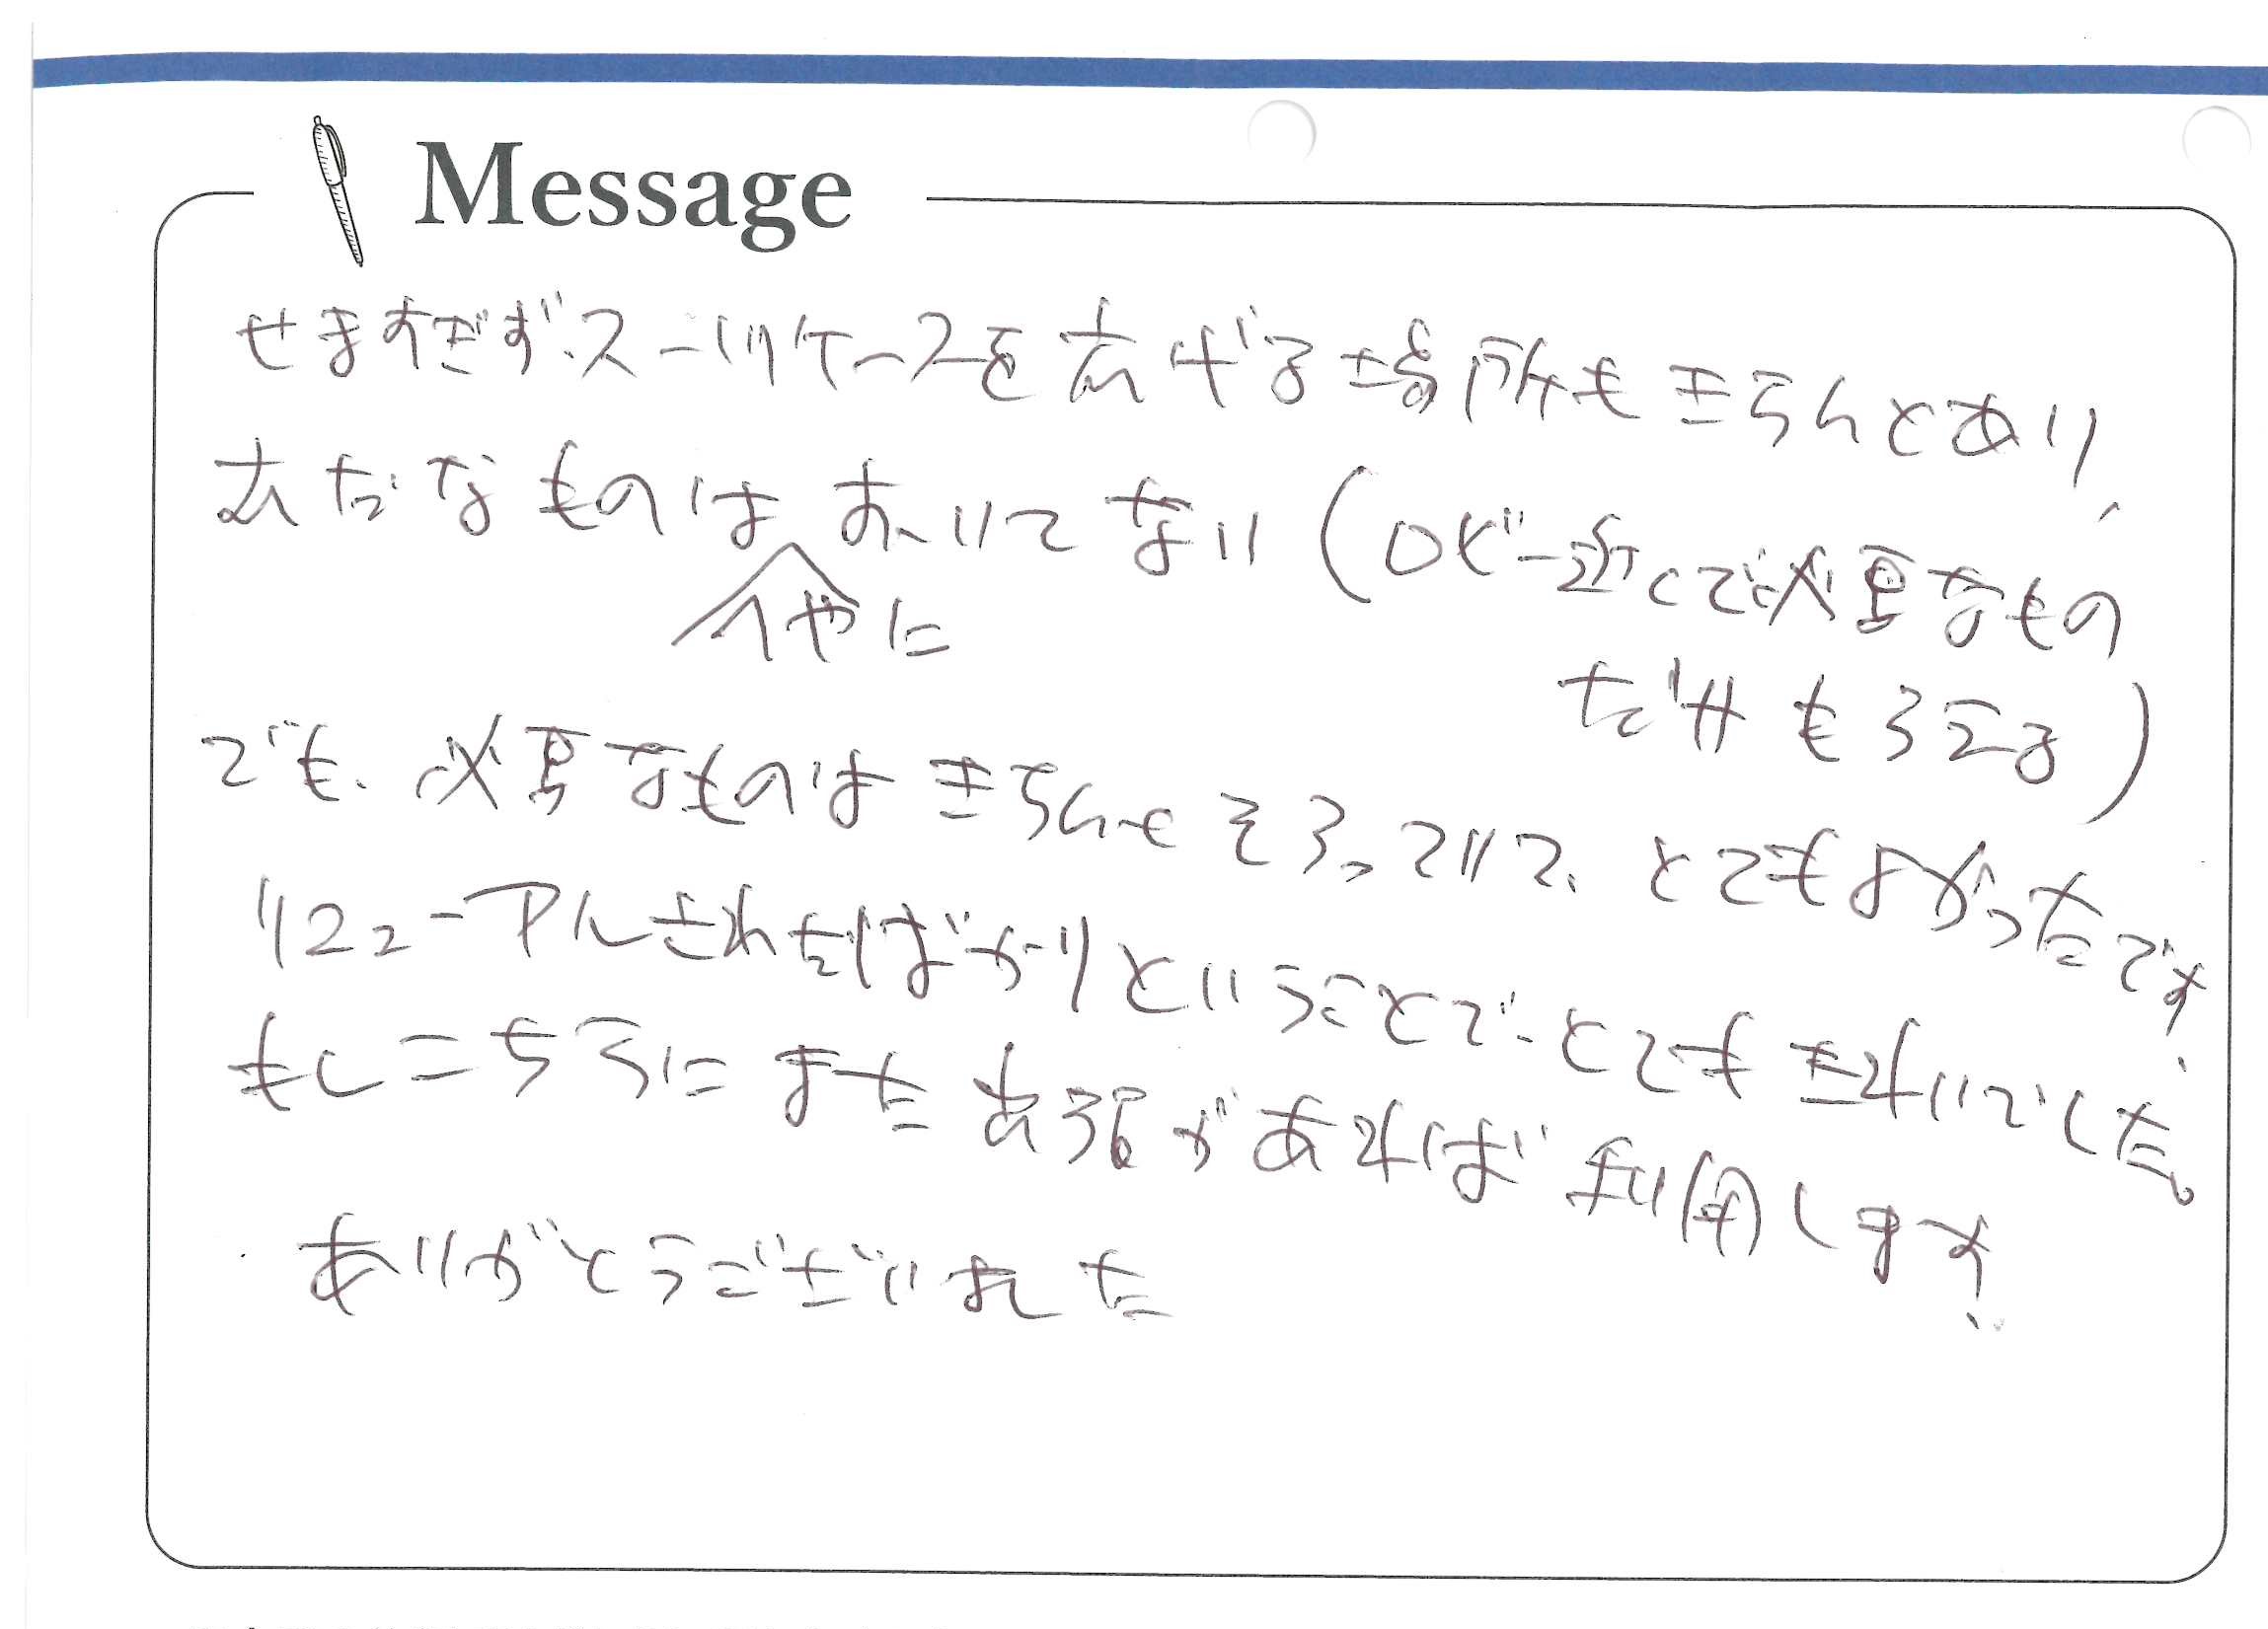 Message
せますぎず、スーツケースを広げる場所もきちんとあり、
ムダなものはへやにおいてない(ロビー近くで必要なもの
だけもらえる)
でも、必要なものはきちんとそろっていて、とてもよかったです。
リニューアルされたばかりということで、とてもきれいでした。
もしこちらにまた来るがあれば利用します。
ありがとうございました